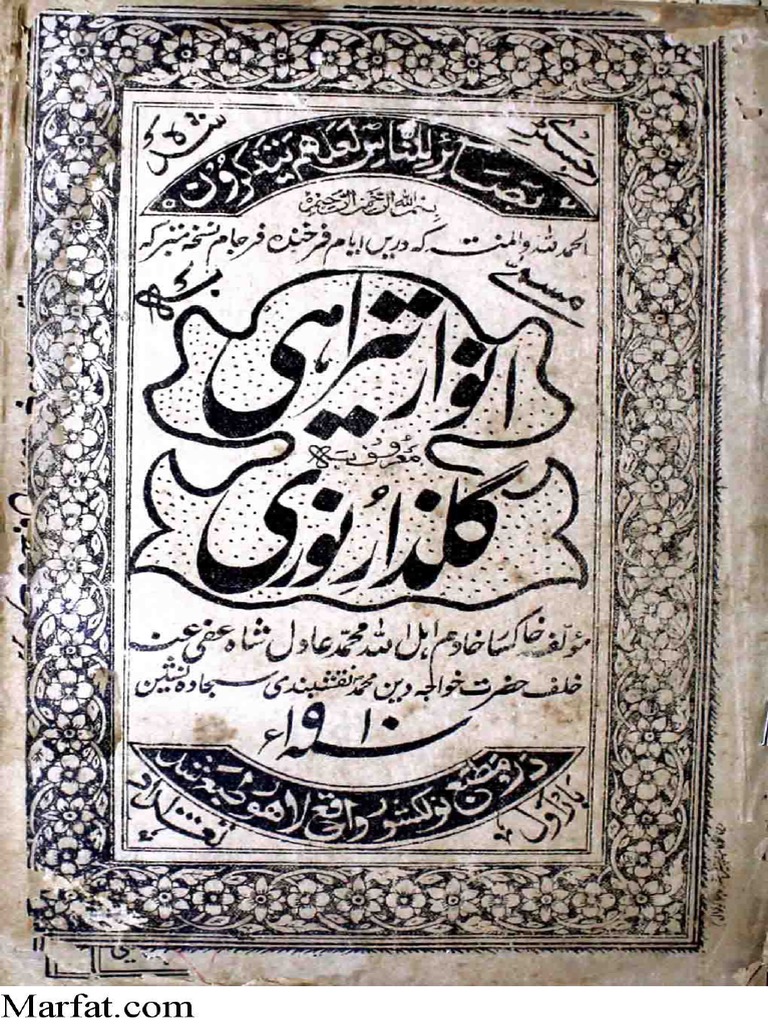 رجسٹری شدہ
بصائر للناس لعلهم يتذكرون
بسم الله الرحمن الرحيم
الحمد للہ والمنت کہ دریں ایام فرخندہ فرجام نسخہ متبرکہ
مسمّٰے بہ
انوار تیراھی
معروف بہ
گلذار نوری
مؤلفہ خاکسار خادم اہل اللہ محمد عادل شاہ عفی عنہ
خلف حضرت خواجہ دین محمد نقشبندی سجادہ نشین
سنہ ۱۹۱۰ء
در مطبع نولکشور واقع لاھور طبع شد
بار اول
تعداد
Marfat.com